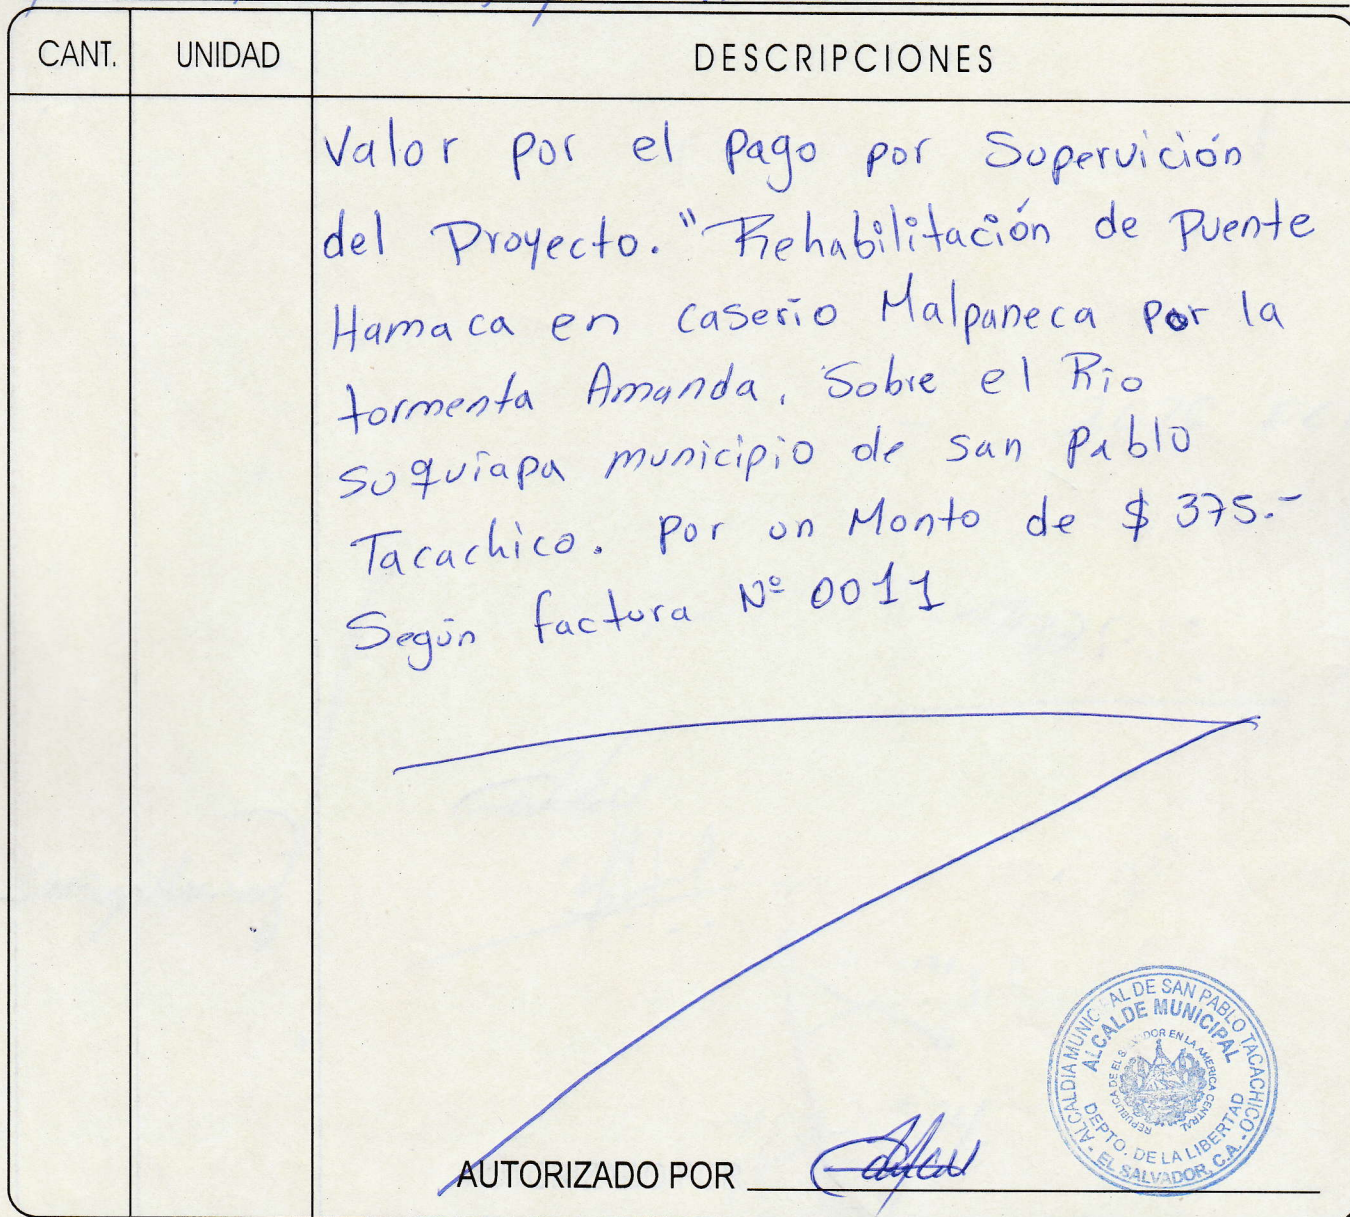 CANT. UNIDAD DESCRIPCIONES
Valor por el pago por Supervición
del Proyecto. "Rehabilitación de Puente
Hamaca en caserio Malpaneca por la
tormenta Amanda, Sobre el Rio
suquiapa municipio de san pablo
Tacachico. Por un Monto de $ 375.-
Según factura Nº 0011
ALCALDIA MUNICIPAL DE SAN PABLO TACACHICO
ALCALDE MUNICIPAL
REPUBLICA DE EL SALVADOR EN LA AMERICA CENTRAL
DEPTO. DE LA LIBERTAD
EL SALVADOR, C.A.
AUTORIZADO POR